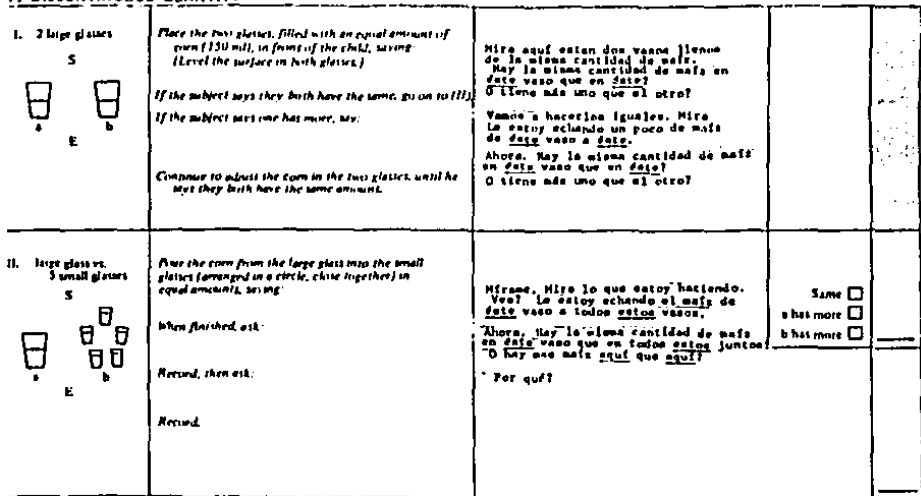 I. 2 large glasses
S
a b
E
Place the two glasses, filled with an equal amount of
corn (150 ml), in front of the child, saying:
(Level the surface in both glasses.)
If the subject says they both have the same, go on to (II).
If the subject says one has more, say:
Continue to adjust the corn in the two glasses, until he
says they both have the same amount.
Mira aquí estan dos vasos llenos
de la misma cantidad de maíz.
Hay la misma cantidad de maíz en
éste vaso que en éste?
O tiene más uno que el otro?
Vamos a hacerlos iguales. Mira
Le estoy echando un poco de maíz
de éste vaso a éste.
Ahora. Hay la misma cantidad de maíz
en éste vaso que en éste?
O tiene más uno que el otro?
II. large glass vs.
5 small glasses
S
a b
E
Pour the corn from the large glass into the small
glasses (arranged in a circle, close together) in
equal amounts, saying:
When finished, ask:
Record, then ask:
Record.
Mírame. Mira lo que estoy haciendo.
Ves? Le estoy echando el maíz de
éste vaso a todos estos vasos.
Ahora. Hay la misma cantidad de maíz
en éste vaso que en todos estos juntos?
O hay mas maíz aquí que aquí?
Por qué?
Same
a has more
b has more